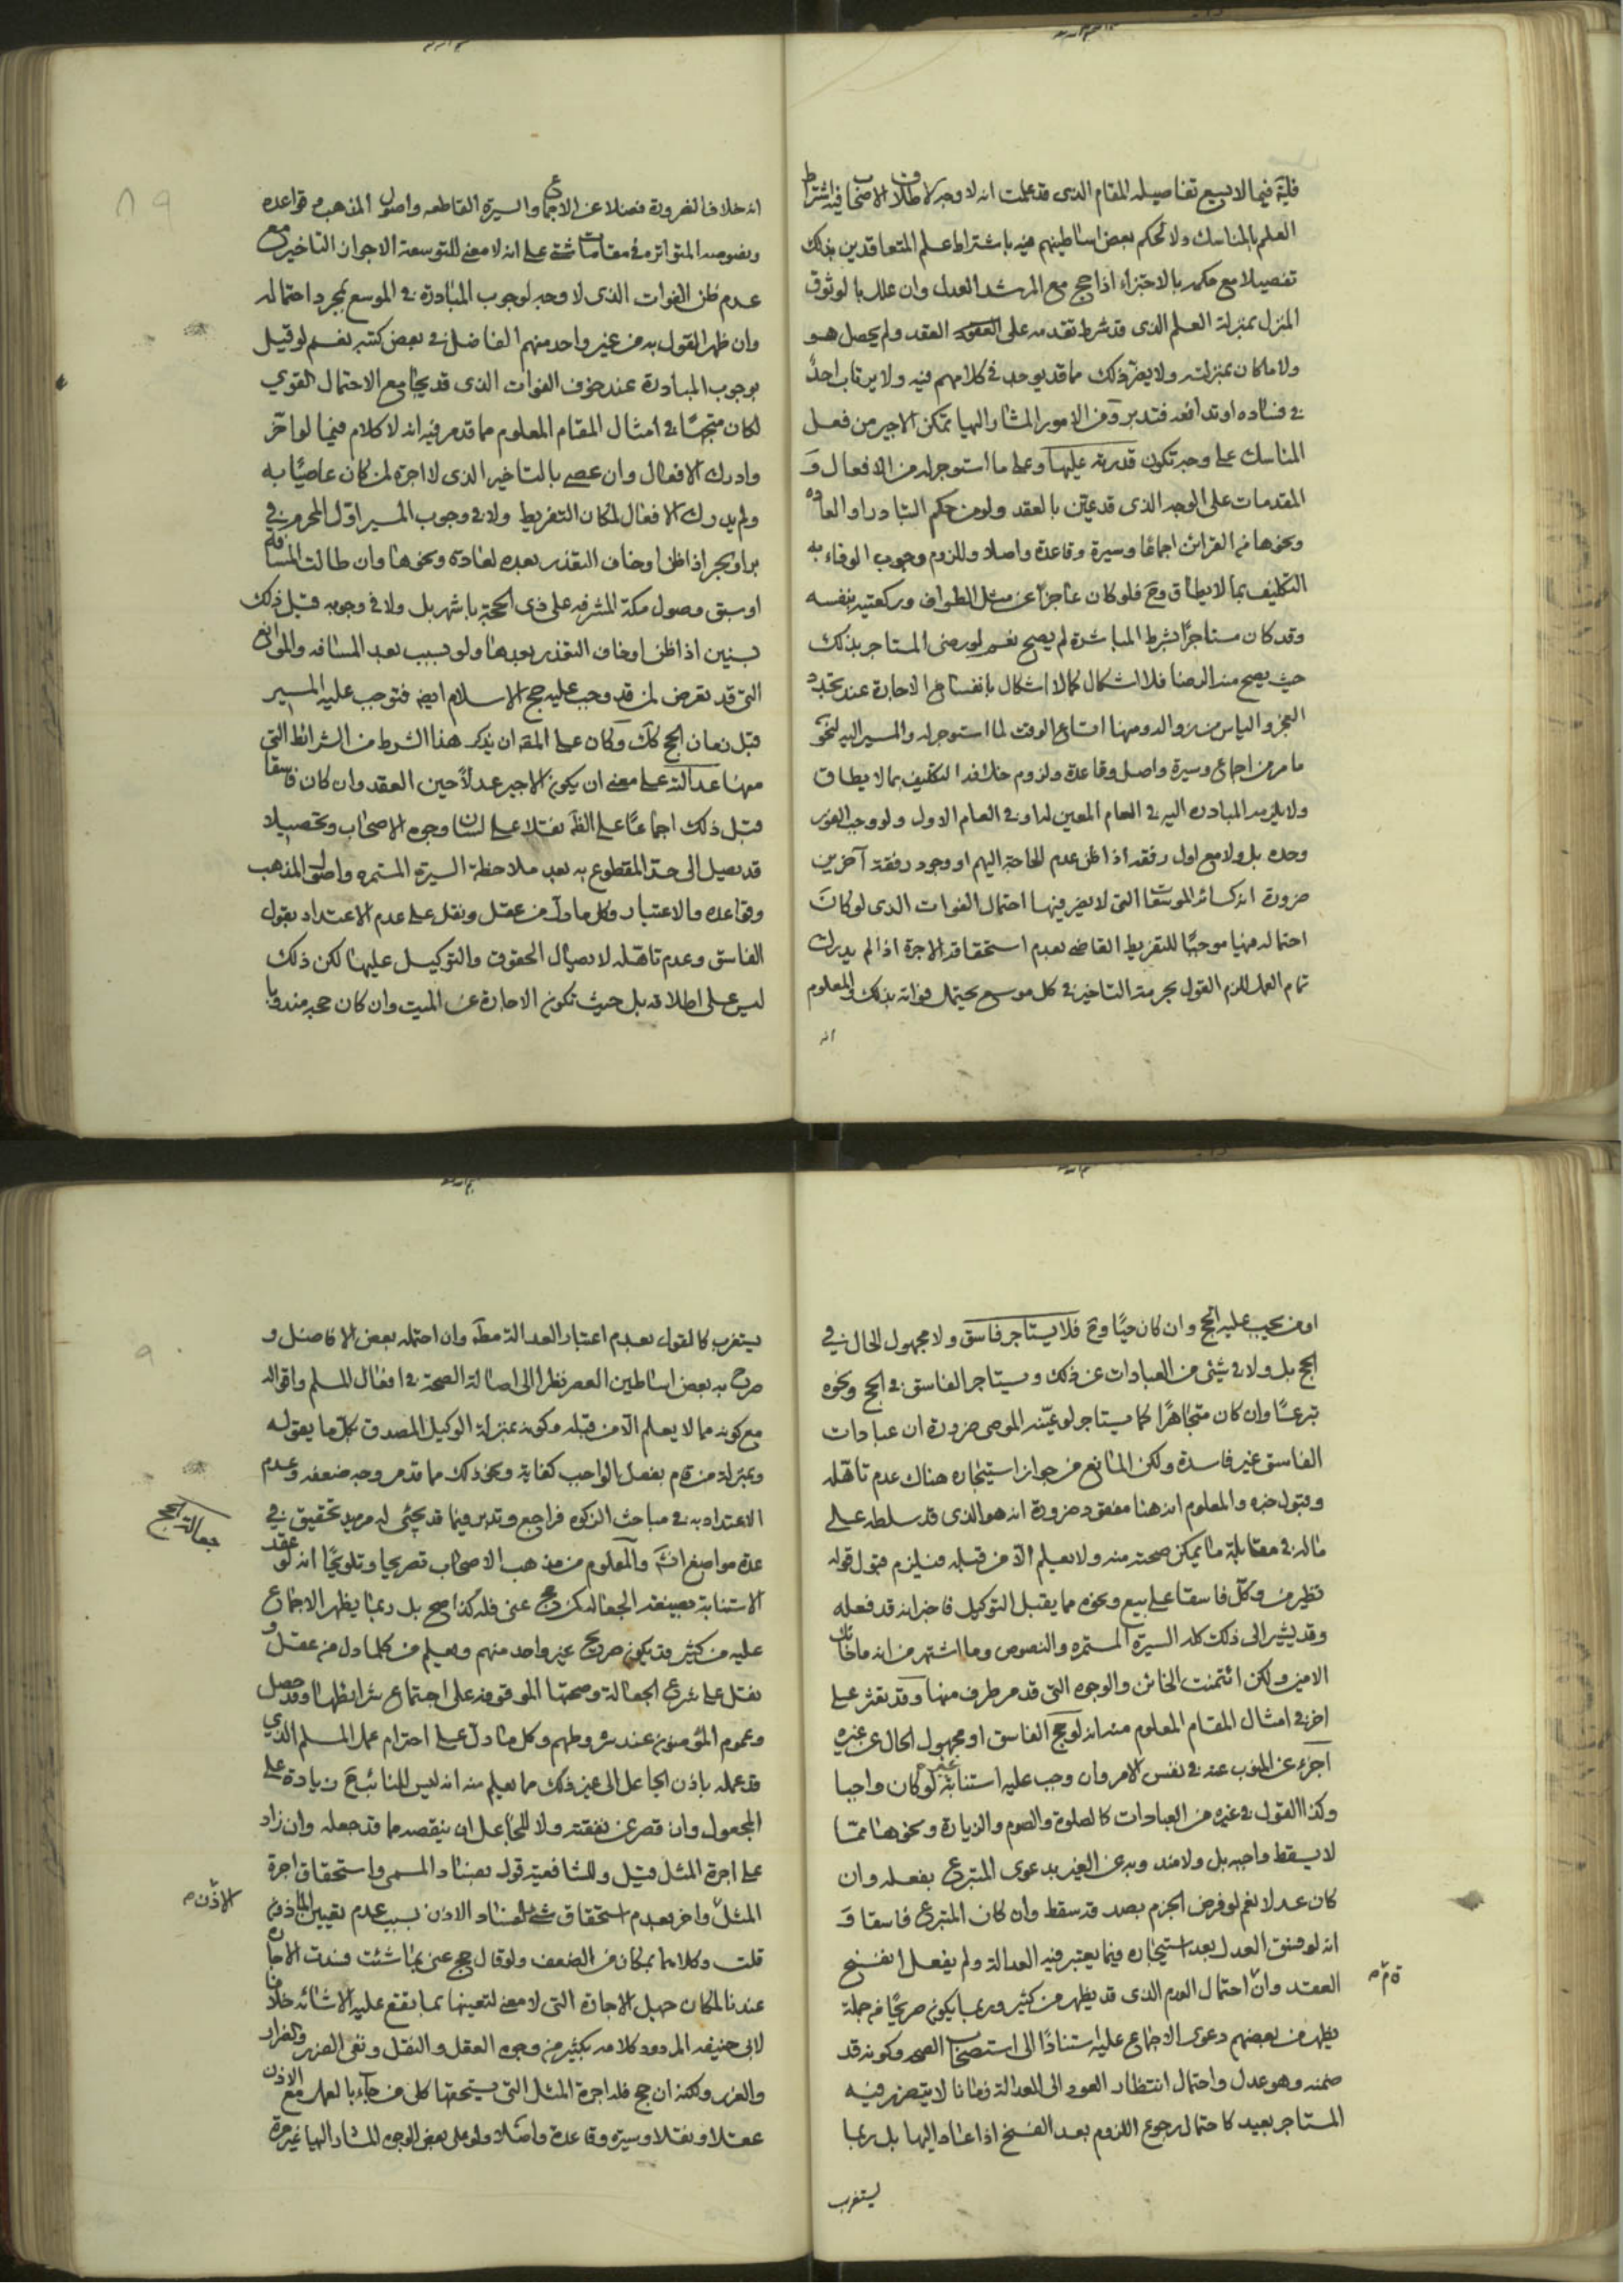 فيما لا يسع تفاصيله المقام الذي قد علمت انه لا وجه لاطلاق الاصحاب فيه اشتراط
العلم بالمناسك ولا لحكم بعض اساطينهم فيه باشتراط علم المتعاقدين بذلك
تفصيلا مع حكمه بالاجتزاء اذا حج مع المرشد العدل وان علله بالوثوق
المنزل بمنزلة العلم الذي قد شرط تقدمه على العقد ولم يحصل هو
ولا ما كان بمنزلته ولا يضر ذلك ما قد يوجد في كلامهم فيه ولا يرتاب احدٌ
في فساده او تدافعه فتدبر ومن الامور المشار اليها تمكن الاجير من فعل
المناسك على وجه تكون قدرته عليها وعلى ما استوجر له من الافعال و
المقدمات على الوجه الذي قد عيّن بالعقد ولو من حكم التبادر او العادة
ونحوها من القرائن اجماعًا وسيرة وقاعدة واصلا وللزوم وجوب الوفاء به
التكليف بما لا يطاق وح فلو كان عاجزًا عن مثل الطواف وركعتيه بنفسه
وقد كان مستاجرًا بشرط المباشرة لم يصح نعم لو رضي المستاجر بذلك
حيث يصح منه الرضا فلا اشكال كما لا اشكال بانفساخ الاجارة عند تجدد
العجز والياس من زواله ومنها اتساع الوقت لما استوجر له والمسير اليه لنحو
ما مر من اجماع وسيرة واصل وقاعدة ولزوم خلافه التكليف بما لا يطاق
ولا يلزمه المبادرة اليه في العام المعين له او في العام الاول ولو وجب الفور
وحده بل ولا مع اول رفقة اذا ظن عدم الحاجة اليهم او وجود رفقة آخرين
ضرورة انه كسائر الموسّعات التي لا يضر فيها احتمال الفوات الذي لو كان
احتماله فيها موجبًا للتفريط القاضي بعدم استحقاقه الاجرة اذا لم يدرك
تمام العمل للزم القول بحرمة التاخير في كل موسع يحتمل فواته بذلك والمعلوم
انه
انه خلاف الضرورة فضلا عن الاجماع والسيرة القاطعه واصول المذهب وقواعده
ونصوصه المتواتره في مقامات شتى على انه لا معنى للتوسعة الا جواز التاخير مع
عدم ظن الفوات الذي لا وجه لوجوب المبادرة في الموسع بمجرد احتماله
وان ظهر القول به من غير واحد منهم الفاضل في بعض كتبه نعم لو قيل
بوجوب المبادرة عند خوف الفوات الذي قد يجامع الاحتمال القوي
لكان متجهًا في امثال المقام المعلوم مما قد مر فيه انه لا كلام فيما لو اخّر
وادرك الافعال وان عصى بالتاخير الذي لا اجرة لمن كان عاصيًا به
ولم يدرك الافعال لمكان التفريط ولا في وجوب المسير اوّل المحرم في
بر او بحر اذا ظن او خاف التعذر بعده لعادة ونحوها وان طالت المسافة
او سبق وصول مكة المشرفه على ذي الحجة باشهر بل ولا في وجوبه قبل ذلك
بسنين اذا ظن او خاف التعذر بعدها ولو بسبب بعد المسافه والموانع
التي قد تعرض لمن قد وجب عليه حج الاسلام ايضا فتوجب عليه المسير
قبل زمان الحج كك وكان على المقدمة ان يذكر هذا الشرط من الشرائط التي
منها عدالته على معنى ان يكون الاجير عدلاً حين العقد وان كان فاسقا
قبل ذلك اجماعًا على الظ نقلا على لسان وجوه الاصحاب وتحصيلا
قد يصل الى حد المقطوع به بعد ملاحظة السيرة المستمره واصول المذهب
وقواعده والاعتبار وكل ما دل من عقل ونقل على عدم الاعتداد بقول
الفاسق وعدم تاهّله لايصال الحقوق والتوكيل عليها لكن ذلك
ليس على اطلاقه بل حيث تكون الاجارة عن الميت وان كان حجه مندوبا
او من يجب عليه الحج وان كان حيًا وح فلا يستاجر فاسق ولا مجهول الحال في
الحج بل ولا في شيئ من العبادات عن ذلك ويستاجر الفاسق في الحج ونحوه
تبرعًا وان كان متجاهرًا كما يستاجر لو عيّنه الموصى ضرورة ان عبادات
الفاسق غير فاسدة ولكن المانع من جواز استيجاره هناك عدم تاهّله
وقبول خبره والمعلوم انه هنا مفقود ضرورة انه هو الذي قد سلطه على
ماله في مقابلة ما يمكن صحته منه ولا يعلم الا من قبله فيلزم قبول قوله
نظير من وكّل فاسقا على بيع ونحوه مما يقبل التوكيل فاخبر انه قد فعله
وقد يشير الى ذلك كله السيرة المستمره والنصوص وما اشتهر من انه ما خانك
الامين ولكن ائتمنت الخائن والوجوه التي قد مر طرف منها وقد تعثر على
اخر في امثال المقام المعلوم منه انه لو حج الفاسق او مجهول الحال عن غيره
اجزء عن المنوب عنه في نفس الامر وان وجب عليه استنابة غيره لو كان واجبا
وكذا القول في غيره من العبادات كالصلوة والصوم والزيارة ونحوها ممّا
لا يسقط واجبه بل ولا مندوبه عن الغير بدعوى المتبرع بفعله وان
كان عدلا نعم لو فرض الجزم بصدقه سقط وان كان المتبرع فاسقا و
انه لو فسق العدل بعد استيجاره فيما يعتبر فيه العدالة ولم يفعل انفسخ
العقد وانّ احتمال العدم الذي قد يظهر من كثير وربما يكون صريحًا من جملة
يظهر من بعضهم دعوى الاجماع عليه استنادًا الى استصحاب الصحه وكونه قد
ضمنه وهو عدل واحتمال انتظار العود الى العدالة زمانا لا يتضرر فيه
المستاجر بعيد كاحتمال رجوع اللزوم بعد الفسخ اذا عاد اليها بل ربما
يستغرب
يستغرب كالقول بعدم اعتبار العدالة مطلقا وان احتمله بعض الافاضل و
صرح به بعض اساطين العصر نظرا الى اصالة الصحة في افعال المسلم واقواله
مع كونه مما لا يعلم الا من قبله وكونه بمنزلة الوكيل المصدق بكل ما يقوله
وبمنزلة من قام بفعل الواجب كفاية ونحو ذلك مما قد مر وجه ضعفه وعدم
الاعتداد به في مباحث الزكوه فراجع وتدبر فيما قد يجئى له مزيد تحقيق في
جعالة الحج
عدة مواضع انشا والمعلوم من مذهب الاصحاب تصريحا وتلويحًا انه لو عقد
الاستنابة بصيغة الجعاله كمن حج عني فله كذا صح بل ربما يظهر الاجماع
عليه من كثير قد يكون صريح غير واحد منهم ويعلم من كلما دل من عقل و
نقل على شرع الجعالة وصحتها الموقوفه على اجتماع شرائطها وقد حصل
وعموم المؤمنون عند شروطهم وكل ما دل على احترام عمل المسلم الذي
قد عمله باذن الجاعل الى غير ذلك مما يعلم منه انه ليس للنائب ح زيادة على
المجعول وان قصر عن نفقته ولا للجاعل ان ينقصه مما قد جعله وان زاد
على اجرة المثل قيل وللشافعية قول بفساد المسمى واستحقاق اجرة
المثل واخر بعدم استحقاق شئ لفساد الاذن بسبب عدم تعيين الماذون
الاذن
قلت وكلاهما بمكان من الضعف ولو قال حج عني بما شئت فسدت الاجارة
عندنا لمكان جهل الاجارة التي لا معنى لتعينها بما يقع عليه الاشائه خلافا
لابي حنيفه المردود كلامه بكثير من وجوه العقل والنقل ونفي الضرر والضرار
والغرر ولكنه ان حج فله اجرة المثل التي يستحقها كل من جاء بالعمل مع الاذن
عقلا ونقلا وسيرة وقاعدة واصلا ولو على بعض الوجوه المشار اليها غير مرة